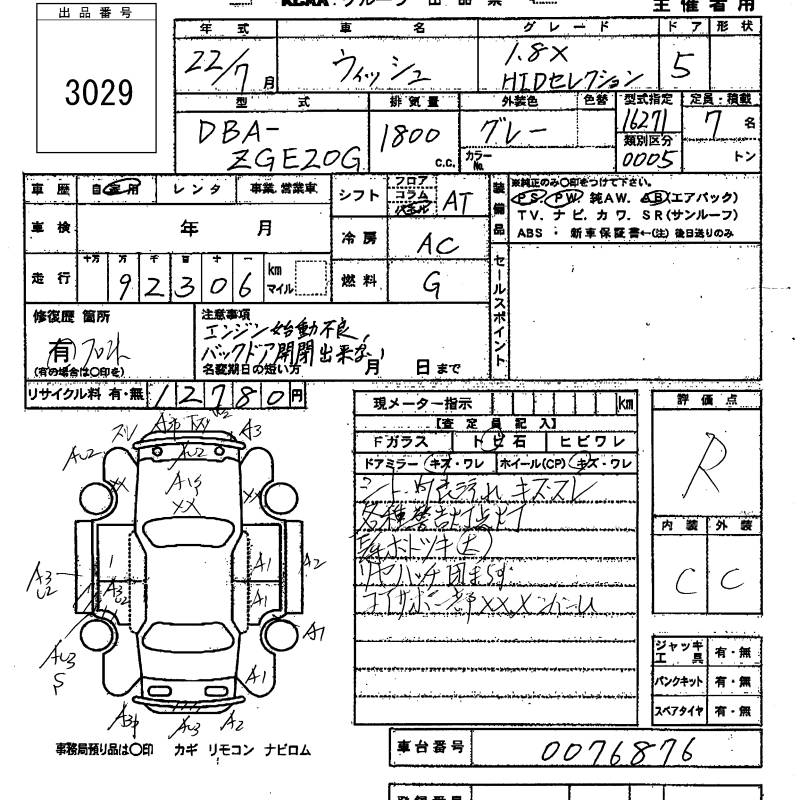 出品番号
3029
主催者用
年式 車名 グレード ドア 形状
22/7月 ウィッシュ 1.8X HIDセレクション 5
型式 排気量 外装色 色替 型式指定 定員・積載
DBA-ZGE20G 1800 c.c. グレー カラーNo. 16271 類別区分 0005 7名 トン
車歴 自家用 レンタ 事業.営業車
シフト フロア コラム AT
装備品 ※純正のみ〇印をつけて下さい。
PS. PW. 純AW. AB(エアバック)
TV. ナビ. カワ. SR(サンルーフ)
ABS ・ 新車保証書←(注) 後日送りのみ
車検 年 月
冷房 AC
走行 十万 万 千 百 十 一 km マイル
92306
燃料 G
セールスポイント
修復歴 箇所
有
(有の場合は〇印を)
注意事項
エンジン始動不良、
バックドア開閉出来ない
名変期日の短い方 月 日まで
リサイクル料 有・無 12780円
現メーター指示 km
【査定員記入】
Fガラス トビ石 ヒビワレ
ドアミラー キズ・ワレ ホイール(CP) キズ・ワレ
各種警告灯点灯
評価点
R
内装 外装
C C
A3
AU2
AU2
XX
XX
A1
A1
A2
A3
U2
A1
A1
A2
ジャッキ工具 有・無
パンクキット 有・無
スペアタイヤ 有・無
事務局預り品は〇印 カギ リモコン ナビロム
車台番号 0076876